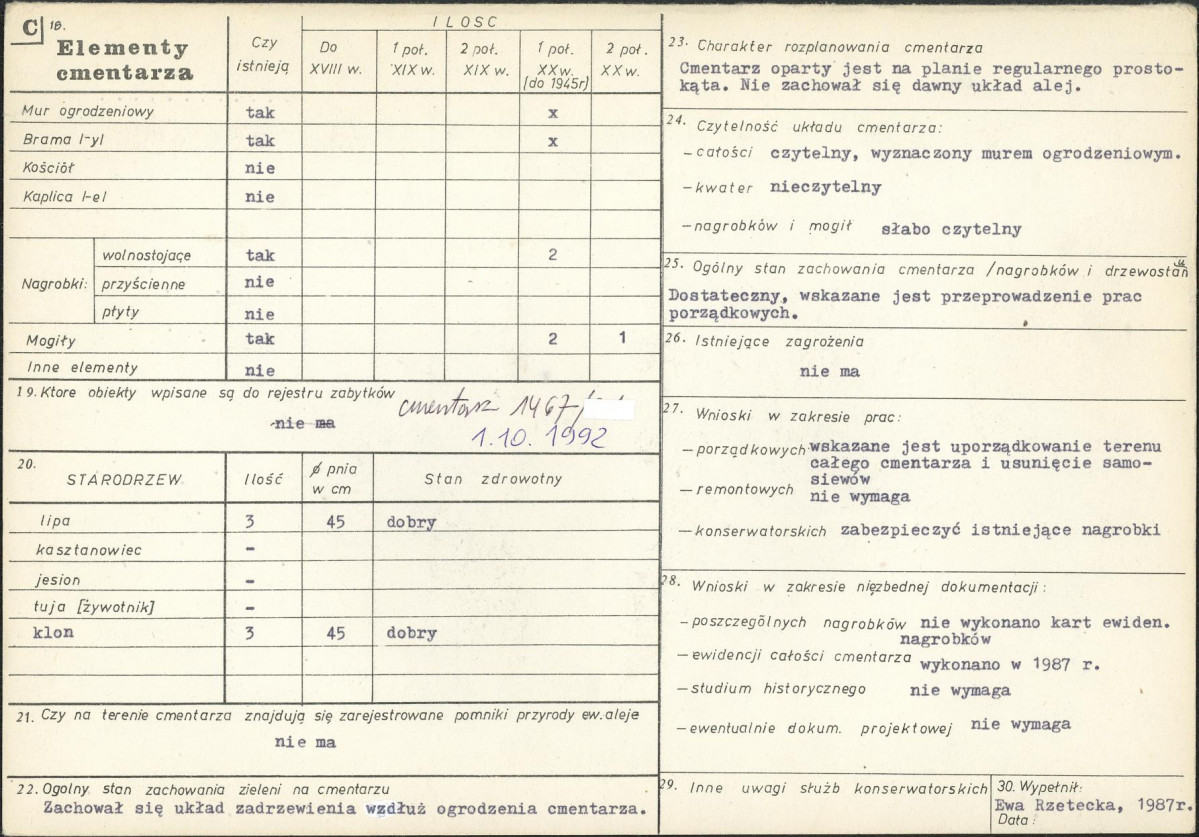 C 18.
Elementy
cmentarza
Czy
istnieją
ILOSC
Do
XVIII w.
1 poł.
XIX w.
2 poł.
XIX w.
1 poł.
XX w.
(do 1945r)
2 poł.
XX w.
Mur ogrodzeniowy tak x
Brama /-y/ tak x
Kościół nie
Kaplica /-e/ nie
Nagrobki: wolnostojące tak 2
przyścienne nie
płyty nie
Mogiły tak 2 1
Inne elementy nie
19. Ktore obiekty wpisane są do rejestru zabytków
nie ma
cmentarz 1467/
1.10.1992
20.
STARODRZEW Ilość ø pnia
w cm
Stan zdrowotny
lipa 3 45 dobry
kasztanowiec -
jesion -
tuja [żywotnik] -
klon 3 45 dobry
21. Czy na terenie cmentarza znajdują się zarejestrowane pomniki przyrody ew. aleje
nie ma
22. Ogolny stan zachowania zieleni na cmentarzu
Zachował się układ zadrzewienia wzdłuż ogrodzenia cmentarza.
23. Charakter rozplanowania cmentarza
Cmentarz oparty jest na planie regularnego prosto-
kąta. Nie zachował się dawny układ alej.
24. Czytelność układu cmentarza:
- całości czytelny, wyznaczony murem ogrodzeniowym.
- kwater nieczytelny
- nagrobków i mogił słabo czytelny
25. Ogólny stan zachowania cmentarza /nagrobków i drzewostanu
Dostateczny, wskazane jest przeprowadzenie prac
porządkowych.
26. Istniejące zagrożenia
nie ma
27. Wnioski w zakresie prac:
- porządkowych wskazane jest uporządkowanie terenu
całego cmentarza i usunięcie samo-
siewów
- remontowych nie wymaga
- konserwatorskich zabezpieczyć istniejące nagrobki
28. Wnioski w zakresie niezbednej dokumentacji:
- poszczególnych nagrobków nie wykonano kart ewiden.
nagrobków
- ewidencji całości cmentarza wykonano w 1987 r.
- studium historycznego nie wymaga
- ewentualnie dokum. projektowej nie wymaga
29. Inne uwagi służb konserwatorskich
30. Wypełnił:
Ewa Rzetecka, 1987r.
Data: